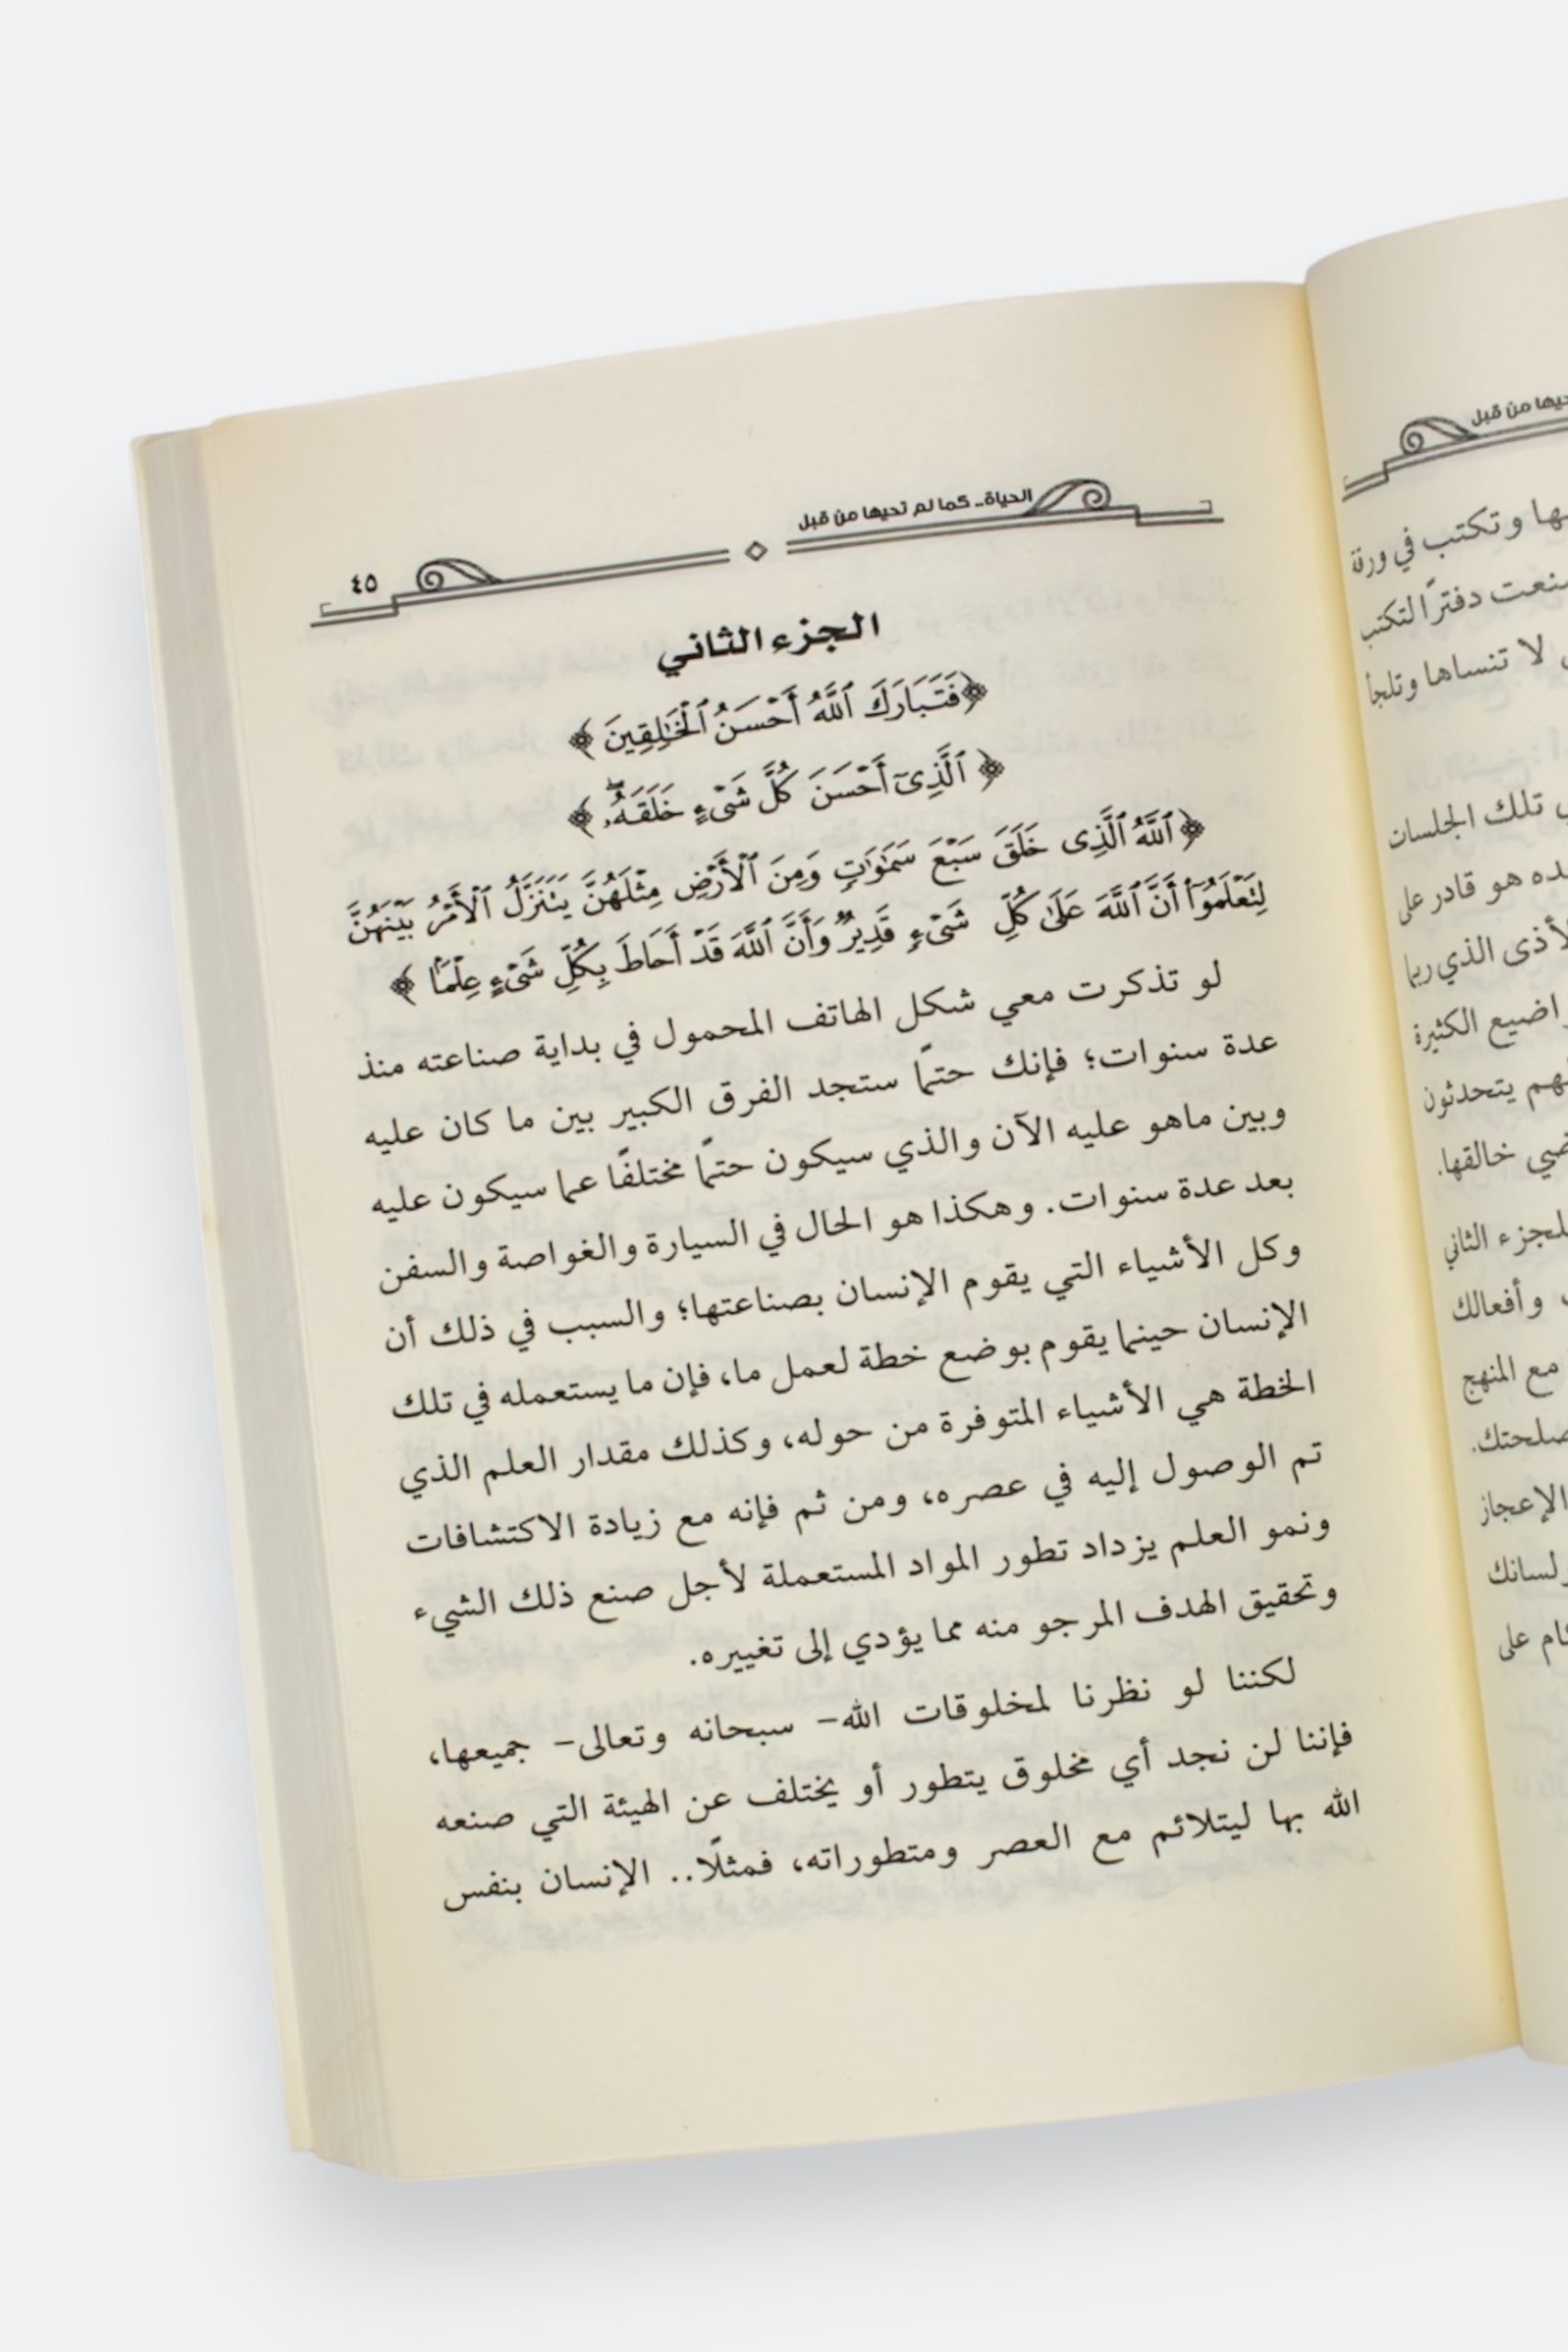 الحياة.. كما لم تحيها من قبل
٤٥
الجزء الثاني
﴿فَتَبَارَكَ ٱللَّهُ أَحْسَنُ ٱلْخَٰلِقِينَ﴾
﴿ٱلَّذِىٓ أَحْسَنَ كُلَّ شَىْءٍ خَلَقَهُۥ ۖ﴾
﴿ٱللَّهُ ٱلَّذِى خَلَقَ سَبْعَ سَمَٰوَٰتٍ وَمِنَ ٱلْأَرْضِ مِثْلَهُنَّ يَتَنَزَّلُ ٱلْأَمْرُ بَيْنَهُنَّ
لِتَعْلَمُوٓا۟ أَنَّ ٱللَّهَ عَلَىٰ كُلِّ شَىْءٍ قَدِيرٌ وَأَنَّ ٱللَّهَ قَدْ أَحَاطَ بِكُلِّ شَىْءٍ عِلْمًۢا﴾
لو تذكرت معي شكل الهاتف المحمول في بداية صناعته منذ
عدة سنوات؛ فإنك حتمًا ستجد الفرق الكبير بين ما كان عليه
وبين ماهو عليه الآن والذي سيكون حتمًا مختلفًا عما سيكون عليه
بعد عدة سنوات. وهكذا هو الحال في السيارة والغواصة والسفن
وكل الأشياء التي يقوم الإنسان بصناعتها؛ والسبب في ذلك أن
الإنسان حينما يقوم بوضع خطة لعمل ما، فإن ما يستعمله في تلك
الخطة هي الأشياء المتوفرة من حوله، وكذلك مقدار العلم الذي
تم الوصول إليه في عصره، ومن ثم فإنه مع زيادة الاكتشافات
ونمو العلم يزداد تطور المواد المستعملة لأجل صنع ذلك الشيء
وتحقيق الهدف المرجو منه مما يؤدي إلى تغييره.
لكننا لو نظرنا لمخلوقات الله- سبحانه وتعالى- جميعها،
فإننا لن نجد أي مخلوق يتطور أو يختلف عن الهيئة التي صنعه
الله بها ليتلائم مع العصر ومتطوراته، فمثلًا.. الإنسان بنفس
من قبل
وتكتب في ورقة
دفترًا لتكتب
لا تنساها وتلجأ
تلك الجلسات
هو قادر على
الذي ربما
الكثيرة
يتحدثون
خالقها.
الثاني
وأفعالك
مع المنهج
الإعجاز
على